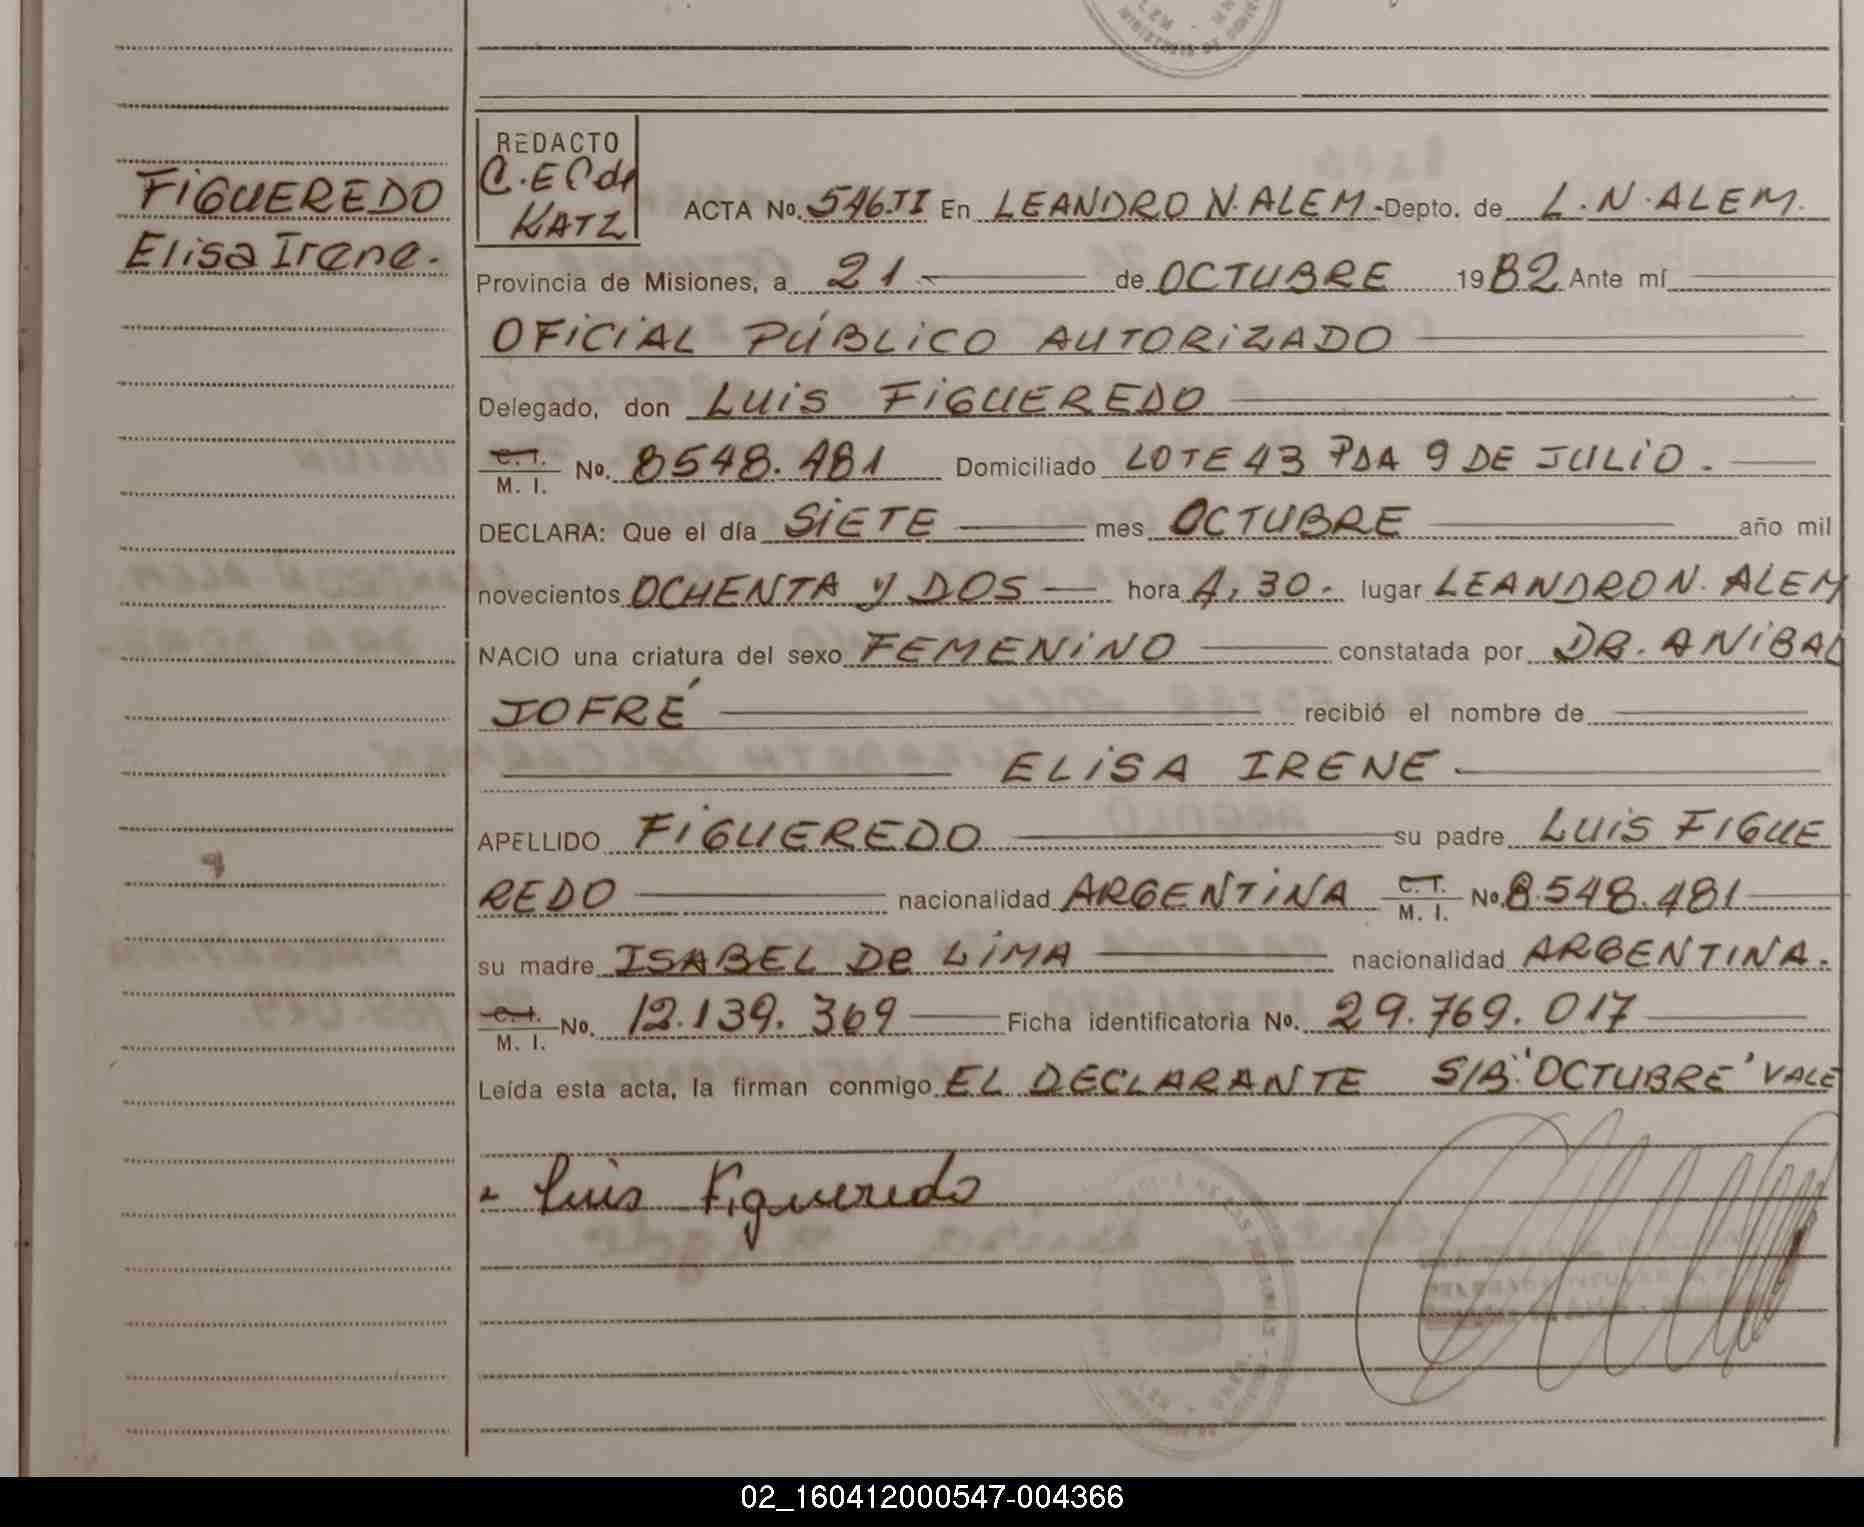 REDACTO
C. E C de
KATZ
FIGUEREDO
Elisa Irene.
ACTA No. 546.TI En LEANDRO N. ALEM - Depto. de L. N. ALEM.
Provincia de Misiones, a 21 de OCTUBRE 1982 Ante mí
OFICIAL PÚBLICO AUTORIZADO
Delegado, don LUIS FIGUEREDO
C. I. M. I. No. 8548.481 Domiciliado LOTE 43 PDA 9 DE JULIO.
DECLARA: Que el día SIETE mes OCTUBRE año mil
novecientos OCHENTA Y DOS hora 4,30. lugar LEANDRO N. ALEM
NACIO una criatura del sexo FEMENINO constatada por DR. ANIBAL
JOFRÉ recibió el nombre de
ELISA IRENE
APELLIDO FIGUEREDO su padre LUIS FIGUE
REDO nacionalidad ARGENTINA C. I. M. I. No. 8.548.481
su madre ISABEL De LIMA nacionalidad ARGENTINA.
C. I. M. I. No. 12.139.369 Ficha identificatoria No. 29.769.017
Leída esta acta, la firman conmigo EL DECLARANTE S/B: "OCTUBRE" VALE
Luis Figueredo
02_160412000547-004366